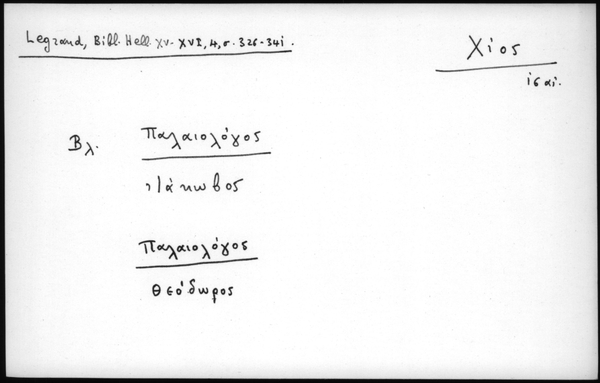 Legrand, Bibl. Hell. XV-XVI, 4, σ. 326-341.
Χίος
ις αἰ.
Βλ. Παλαιολόγος
Ἰάκωβος
Παλαιολόγος
Θεόδωρος